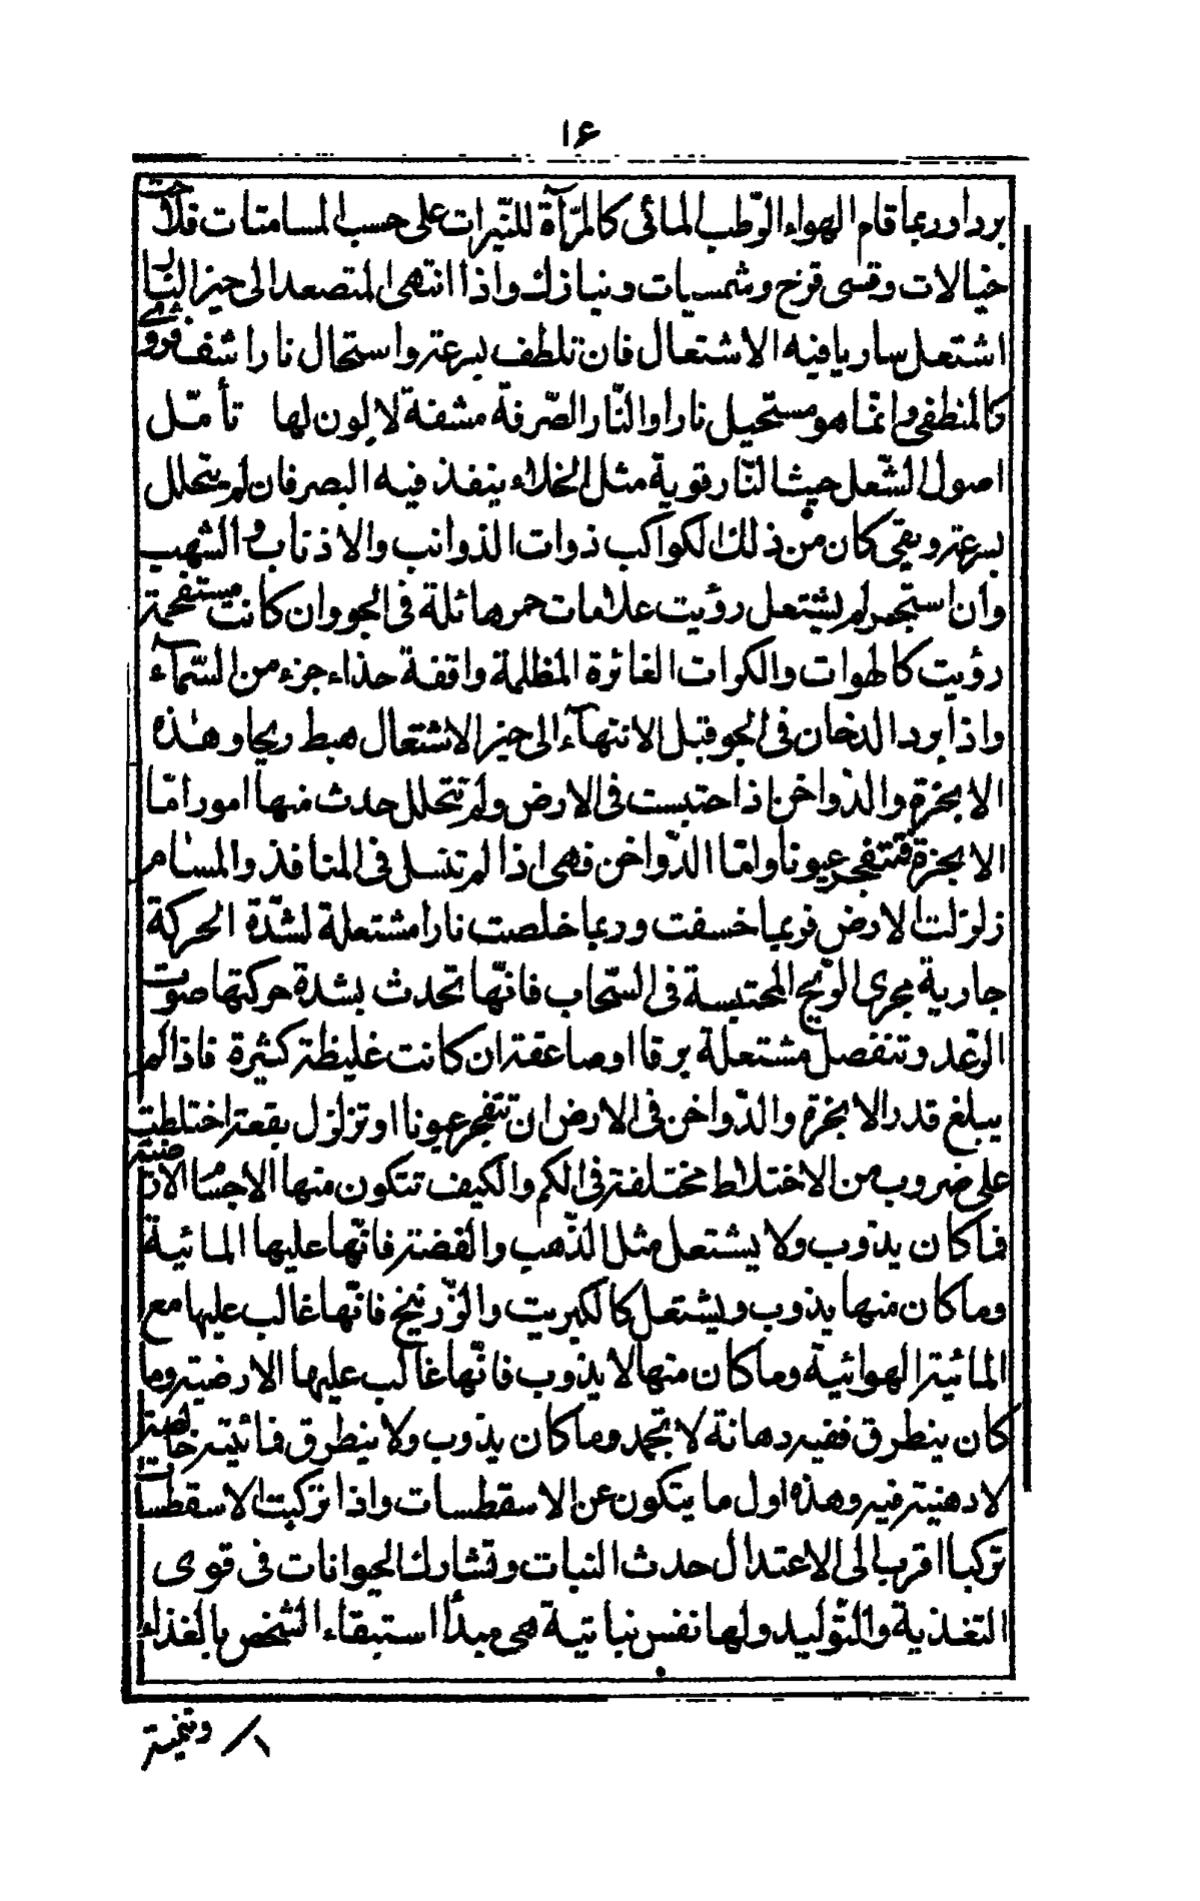 ١۶
بردا وربما قام الهواء الرّطب المائى كالمرّآة للنّيرات على حسب المسامتات فلاحت
خيالات وقسى قزح وشمسيات ونيازك واذا انتهى المتصعد الى حيز النّار
اشتعل ساريا فيه الاشتعال فان تلطف بسرعة واستحال نارا شف فروى
كالمنطفى وانّما هو مستحيل نارا والنّار الصّرفة مشفة لا لون لها تأمّل
اصول الشّعل حيث النّار قوية مثل الخلاء ينفذ فيه البصر فان لم يتحلل
بسرعة وبقى كان من ذلك الكواكب ذوات الذوانب والاذناب والشهب
وان استجمر لم يشتعل رؤيت علامات حمر هائلة فى الجو وان كانت مستفحمة
رؤيت كالهوات والكرات الغائرة المظلمة واقفة حذاء جزء من السّمآء
واذا برد الدخان فى الجو قبل الانتهآء الى حيز الاشتعال هبط ريحا وهذه
الابخرة والدّواخن اذا احتبست فى الارض ولم تتحلل حدث منها امور امّا
الابخرة فتتفجر عيونا وامّا الدّواخن فهى اذا لم تنسل فى المنافذ والمسام
زلزلت الارض فربما خسفت وربما خلصت نارا مشتعلة لشدّة الحركة
جارية مجرى الرّيح المحتبسة فى السّحاب فانّها تحدث بشدة حركتها صوت
الرّعد وتنفصل مشتعلة برقا او صاعقة ان كانت غليظة كثيرة فاذا لم
يبلغ قدر الابخرة والدّواخن فى الارض ان تتفجر عيونا او تزلزل بقعة اختلطت
على ضروب من الاختلاط مختلفة فى الكم والكيف تتكون منها الاجسام الارضية
فما كان يذوب ولا يشتعل مثل الذّهب والفضة فانّها عليها المائية
وما كان منها يذوب ويشتعل كالكبريت والزّرنيخ فانّها غالب عليها مع
المائية الهوائية وما كان منها لا يذوب فانّها غالب عليها الارضية وما
كان ينطرق ففيه دهانة لا تجمد وما كان يذوب ولا ينطرق فمائيته خالصة
لا دهنية فيه وهذه اول ما يتكون عن الاسقطسات واذا تركبت الاسقطسات
تركبا اقرب الى الاعتدال حدث النبات وتشارك الحيوانات فى قوى
التغذية والتّوليد ولها نفس نباتية هى مبدأ استبقاء الشخص بالغذاء
وتنميته